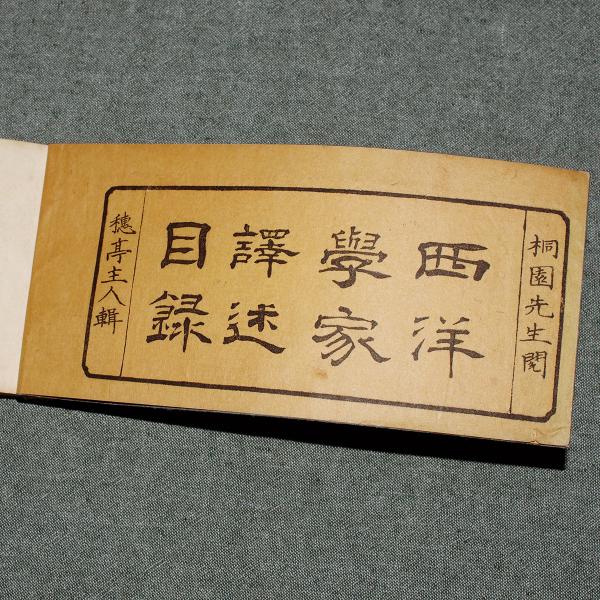 桐園先生閲
西洋
學家
譯述
目録
穗亭主人輯